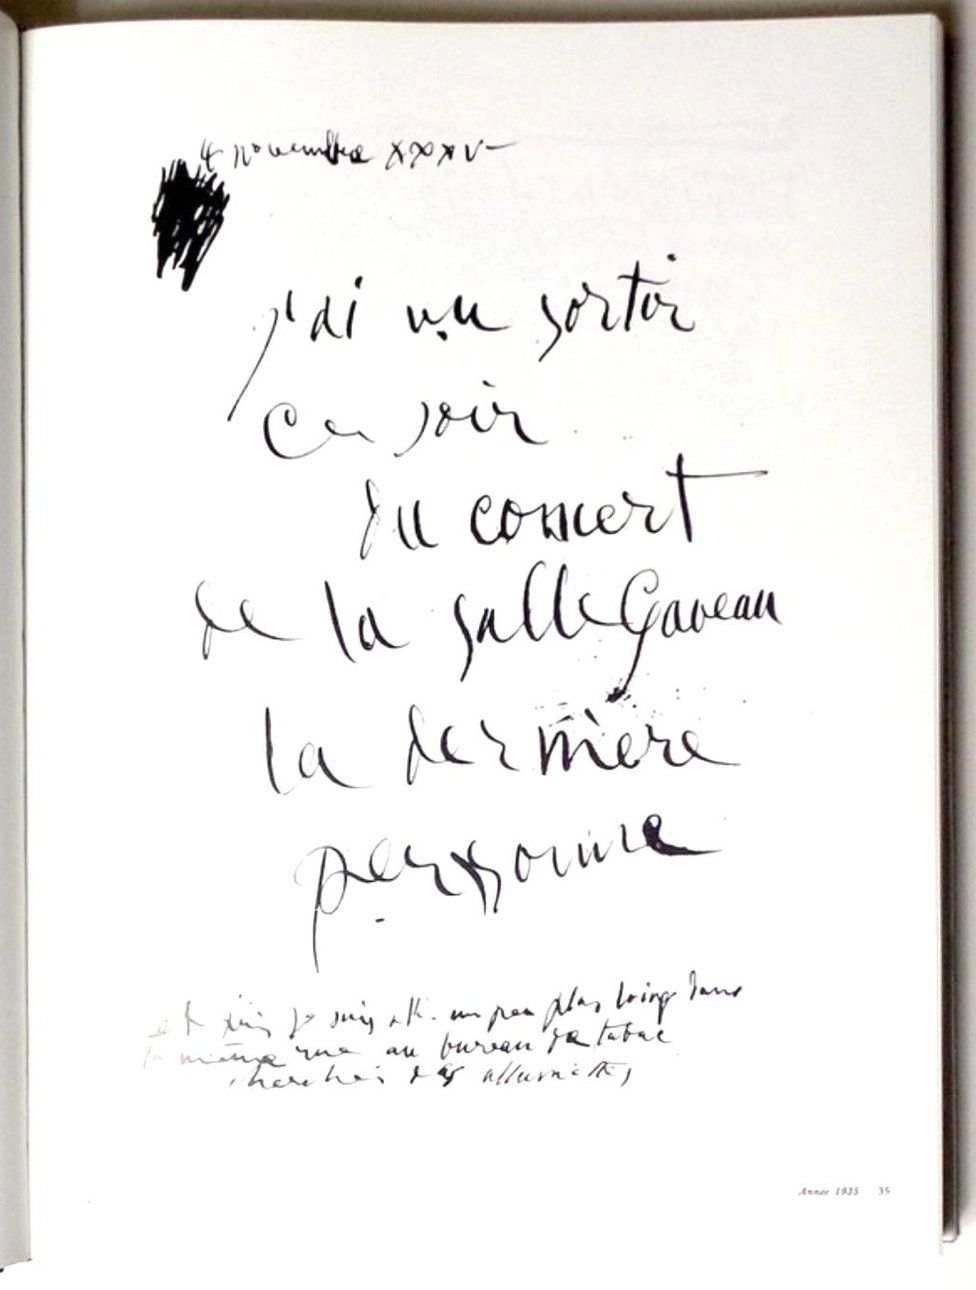 4 novembre XXXV
j'ai vu sortir
ce soir
du concert
de la salle Gaveau
la dernière
personne
et puis je suis allé un peu plus loing dans
la même rue au bureau de tabac
chercher des allumettes
Année 1935 35